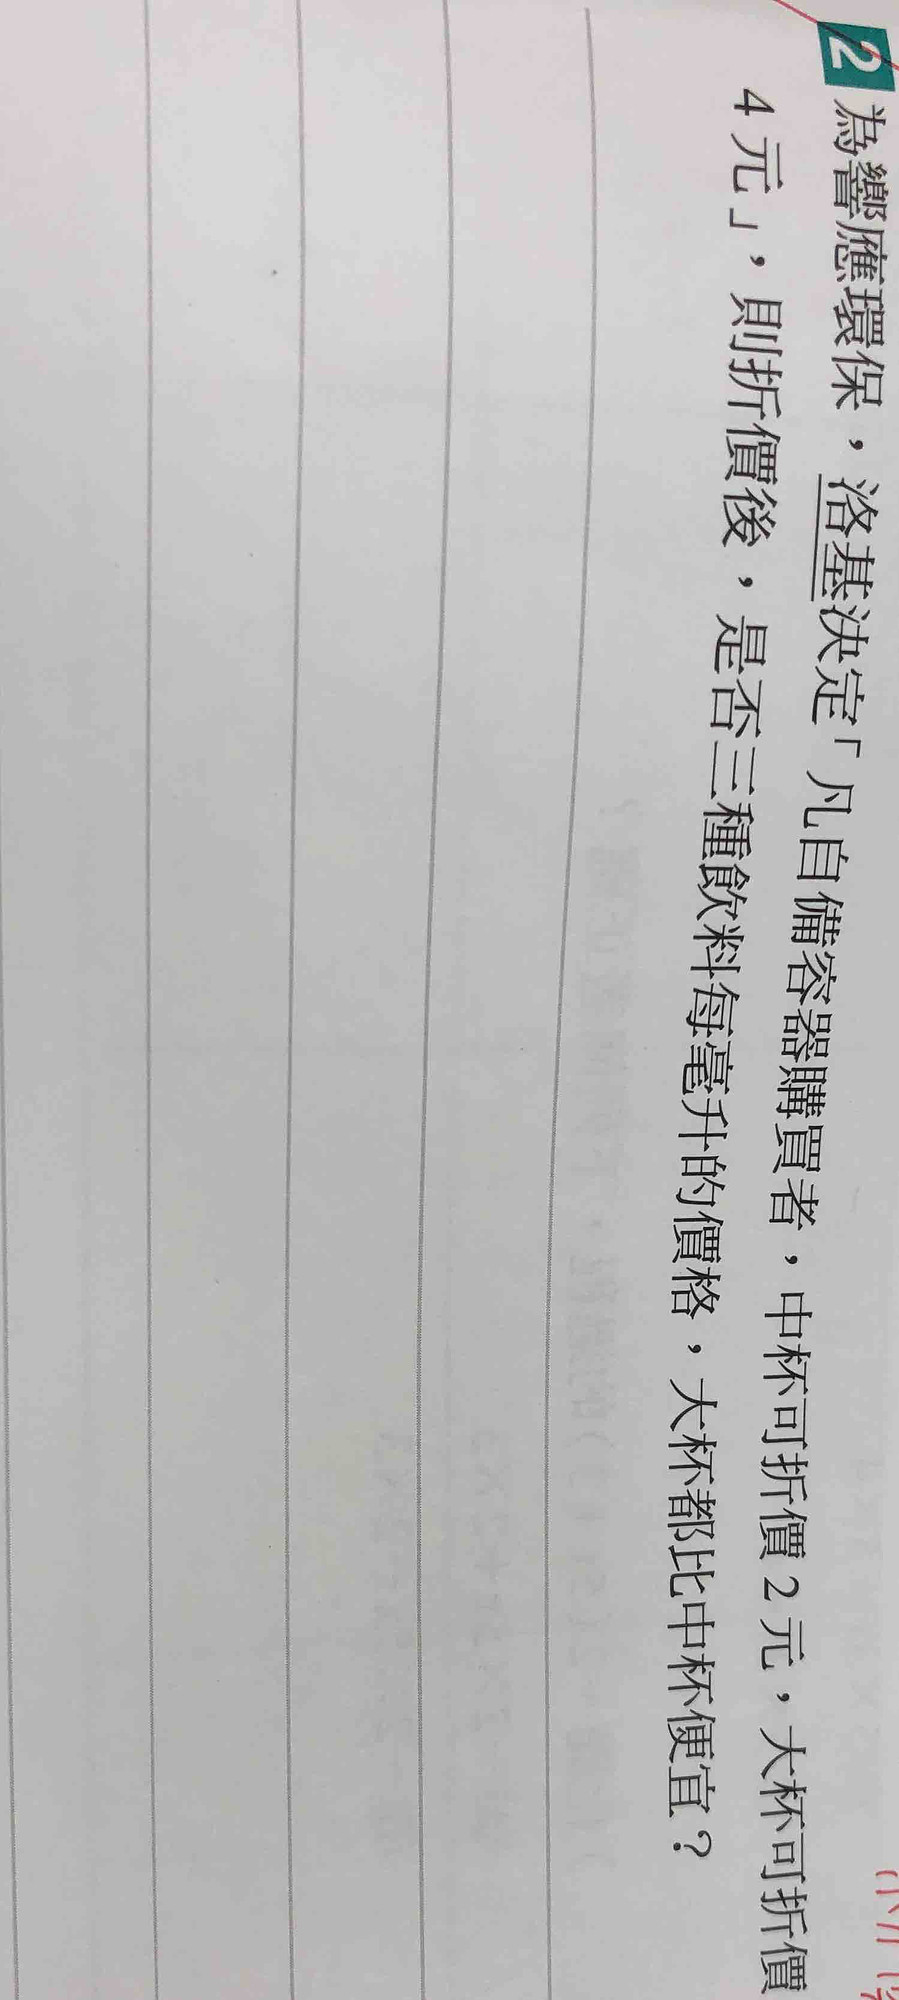 2 為響應環保，洛基決定「凡自備容器購買者，中杯可折價2元，大杯可折價
4元」，則折價後，是否三種飲料每毫升的價格，大杯都比中杯便宜？